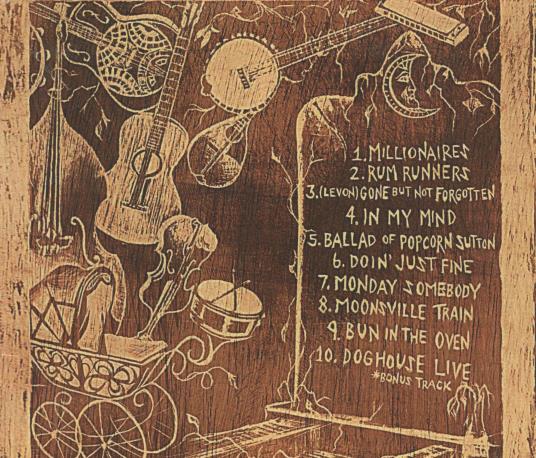 1. MILLIONAIRES
2. RUM RUNNERS
3. (LEVON) GONE BUT NOT FORGOTTEN
4. IN MY MIND
5. BALLAD OF POPCORN SUTTON
6. DOIN' JUST FINE
7. MONDAY SOMEBODY
8. MOONSVILLE TRAIN
9. BUN IN THE OVEN
10. DOGHOUSE LIVE
*BONUS TRACK